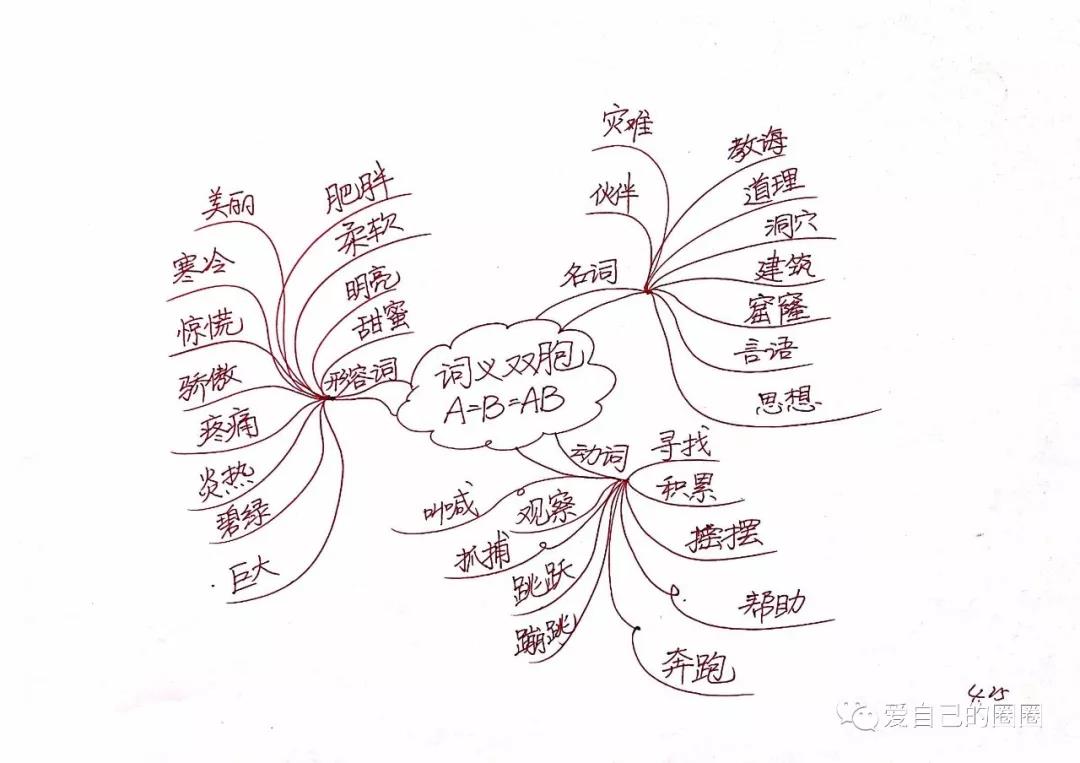 词义双胞
A=B=AB
形容词
肥胖
柔软
明亮
甜蜜
美丽
寒冷
惊慌
骄傲
疼痛
炎热
碧绿
巨大
名词
灾难
伙伴
教诲
道理
洞穴
建筑
窟窿
言语
思想
动词
寻找
积累
摇摆
帮助
奔跑
叫喊
观察
抓捕
跳跃
蹦跳
4.25
爱自己的圈圈